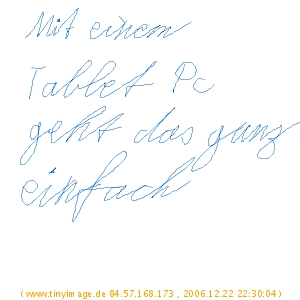 Mit einem
Tablet Pc
geht das ganz
einfach
(www.tinyimage.de 84.57.168.173 , 2006.12.22 22:30:04)